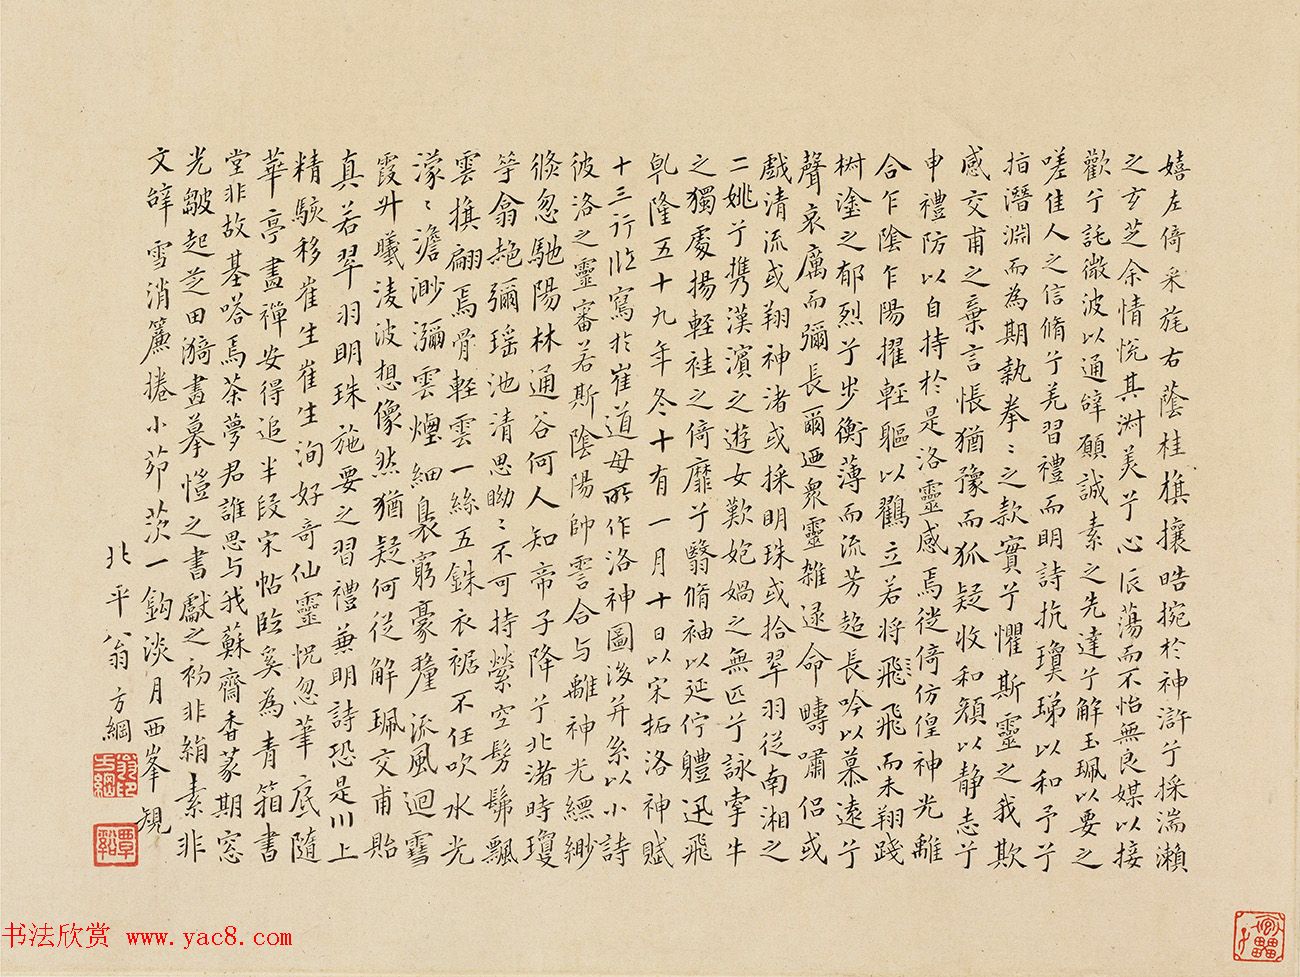 嬉左倚采旄右蔭桂旗攘皓捥於神滸兮採湍瀨
之玄芝余情悅其淑美兮心振蕩而不怡無良媒以接
歡兮託微波以通辭願誠素之先達兮解玉珮以要之
嗟佳人之信脩兮羌習禮而明詩抗瓊珶以和予兮
指潛淵而為期執拳〻之款實兮懼斯靈之我欺
感交甫之棄言悵猶豫而狐疑收和顏以靜志兮
申禮防以自持於是洛靈感焉徙倚仿偟神光離
合乍陰乍陽擢輕軀以鶴立若將飛飛而未翔踐
椒塗之郁烈兮步衡薄而流芳超長吟以慕遠兮
聲哀厲而彌長爾迺衆靈雜遝命疇嘯侶或
戲清流或翔神渚或採明珠或拾翠羽從南湘之
二姚兮携漢濱之遊女歎匏媧之無匹兮詠牽牛
之獨處揚輕袿之倚靡兮翳脩袖以延佇體迅飛
乹隆五十九年冬十有一月十日以宋拓洛神賦
十三行臨寫於崔道母所作洛神圖後并系以小詩
彼洛之靈審若斯陰陽帥雲合与離神光縹緲
倏忽馳陽林通谷何人知帝子降兮北渚時瓊
芩翕赩彌瑤池清思眑〻不可持縈空髣髴飄
雲旗翩焉骨輕雲一絲五銖衣裾不任吹水光
濛〻澹渺瀰雲煙細裊窮豪釐流風迴雪
霞升曦淩波想像然猶疑何從解珮交甫貽
真若翠羽明珠施要之習禮兼明詩恐是川上
精駭移崔生崔生洵好奇仙靈怳忽筆底隨
華亭畫禪安得追半段宋帖臨奚為青箱書
堂非故基嗒焉茶夢君誰思与我蘇齋香篆期窓
光皺起芝田漪畫摹愷之書獻之初非絹素非
文辭雪消簾捲小茆茨一鉤淡月西峯規
北平翁方綱
翁方綱
覃谿
书法欣赏 www.yac8.com